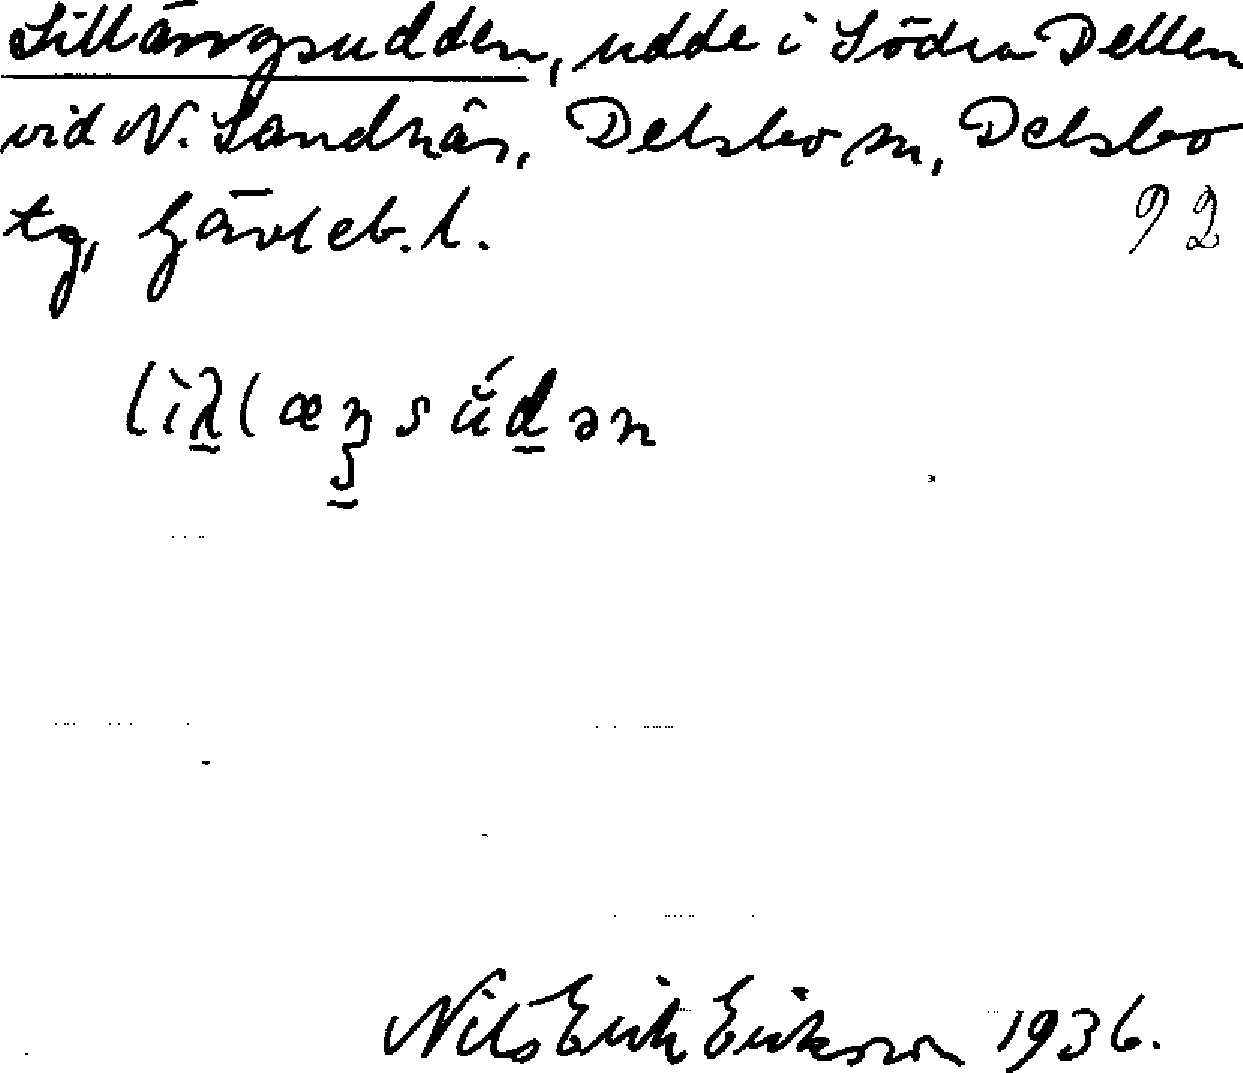 Lillängsudden, udde i Södra Dellen
vid N. Sandnäs, Delsbo sn, Delsbo
tg, Gävleb. l. 92
Nils Erik Erikson 1936.